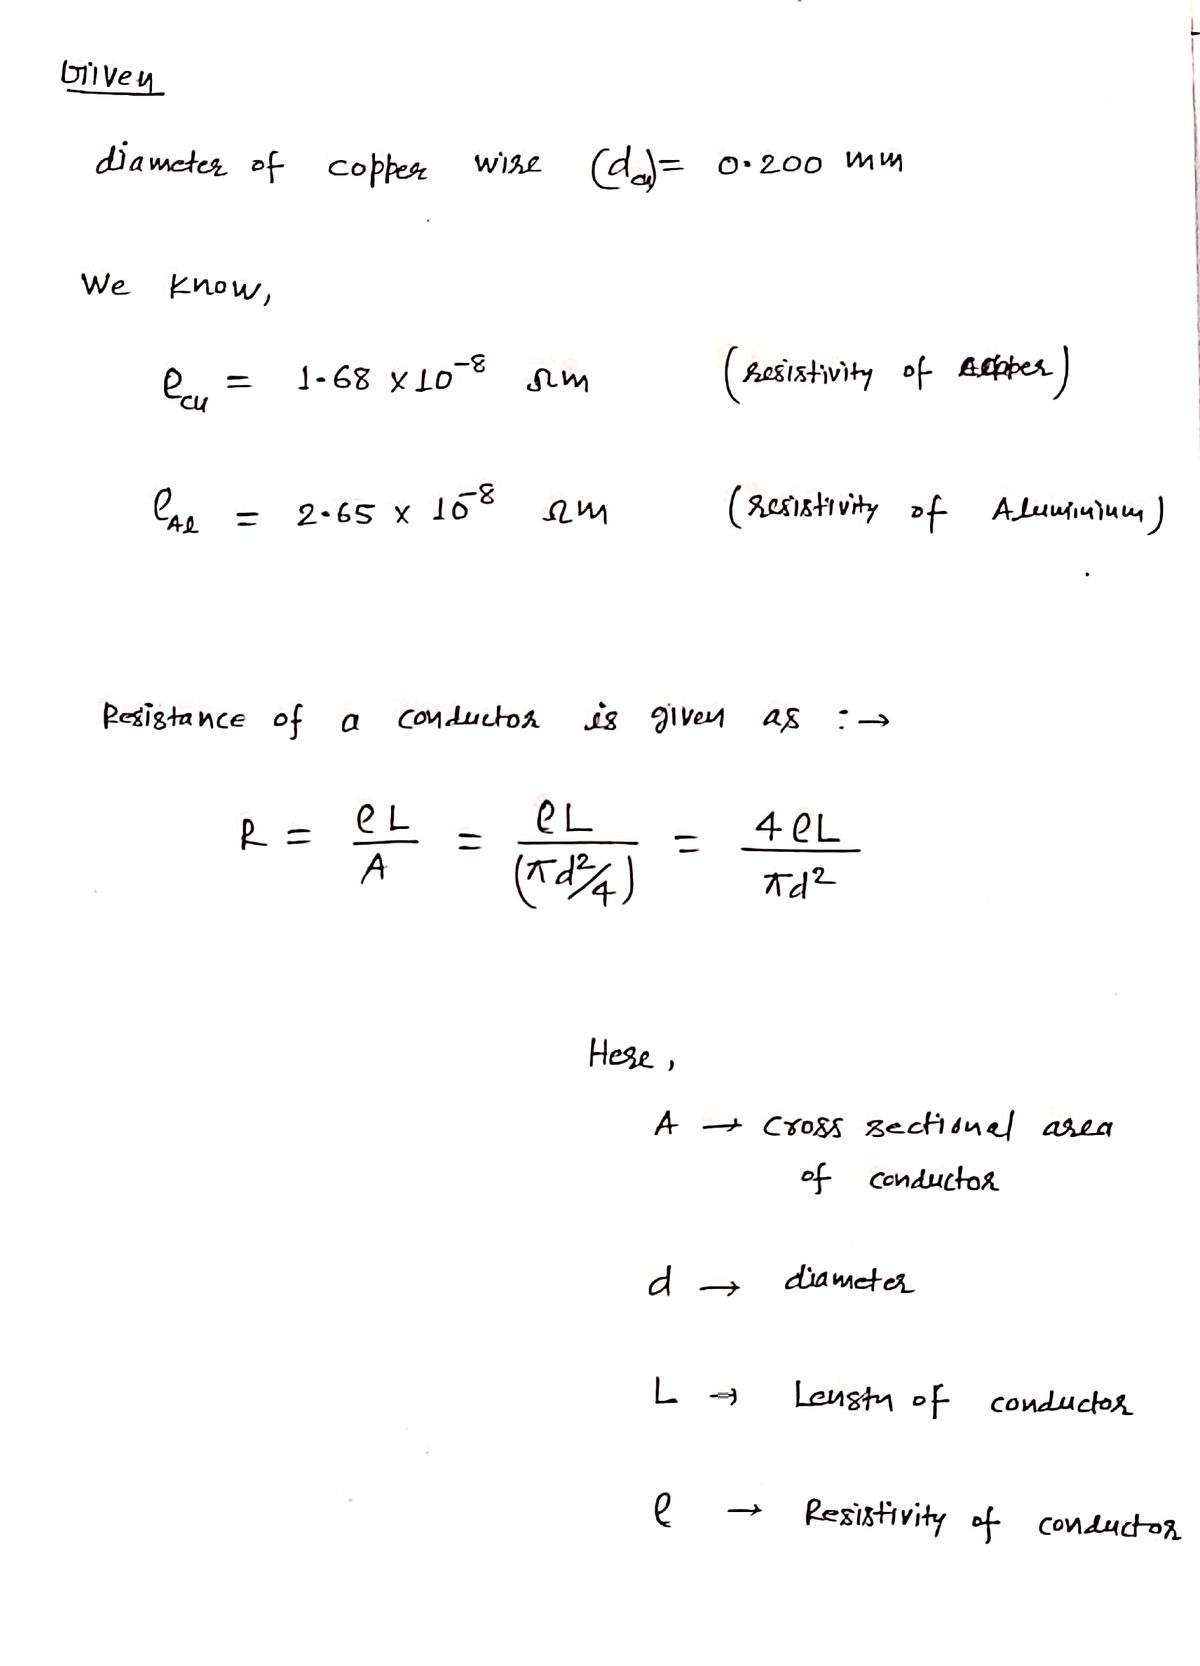 Given
diameter of copper wire (d_cu) = 0.200 mm
We know,
ρ_cu = 1.68 × 10^-8 Ωm (resistivity of copper)
ρ_Al = 2.65 × 10^-8 Ωm (resistivity of Aluminium)
Resistance of a conductor is given as :→
R = ρL/A = ρL/(πd²/4) = 4ρL/πd²
Here,
A → cross sectional area
of conductor
d → diameter
L → Length of conductor
ρ → Resistivity of conductor